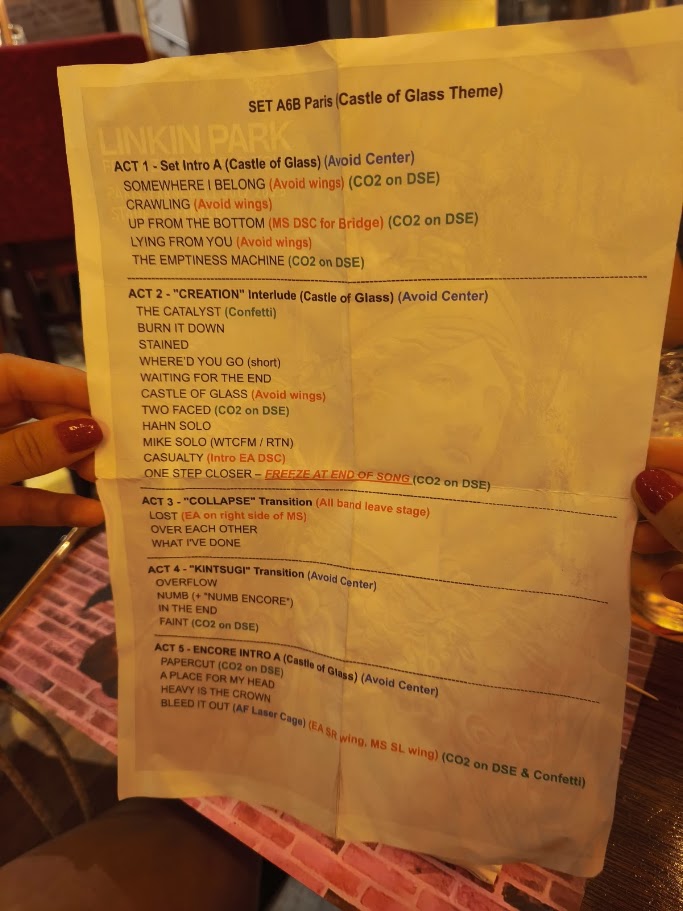 SET A6B Paris (Castle of Glass Theme)
LINKIN PARK
ACT 1 - Set Intro A (Castle of Glass) (Avoid Center)
SOMEWHERE I BELONG (Avoid wings) (CO2 on DSE)
CRAWLING (Avoid wings)
UP FROM THE BOTTOM (MS DSC for Bridge) (CO2 on DSE)
LYING FROM YOU (Avoid wings)
THE EMPTINESS MACHINE (CO2 on DSE)
ACT 2 - "CREATION" Interlude (Castle of Glass) (Avoid Center)
THE CATALYST (Confetti)
BURN IT DOWN
STAINED
WHERE'D YOU GO (short)
WAITING FOR THE END
CASTLE OF GLASS (Avoid wings)
TWO FACED (CO2 on DSE)
HAHN SOLO
MIKE SOLO (WTCFM / RTN)
CASUALTY (Intro EA DSC)
ONE STEP CLOSER – FREEZE AT END OF SONG (CO2 on DSE)
ACT 3 - "COLLAPSE" Transition (All band leave stage)
LOST (EA on right side of MS)
OVER EACH OTHER
WHAT I'VE DONE
ACT 4 - "KINTSUGI" Transition (Avoid Center)
OVERFLOW
NUMB (+ "NUMB ENCORE")
IN THE END
FAINT (CO2 on DSE)
ACT 5 - ENCORE INTRO A (Castle of Glass) (Avoid Center)
PAPERCUT (CO2 on DSE)
A PLACE FOR MY HEAD
HEAVY IS THE CROWN
BLEED IT OUT (AF Laser Cage) (EA SR wing, MS SL wing) (CO2 on DSE & Confetti)